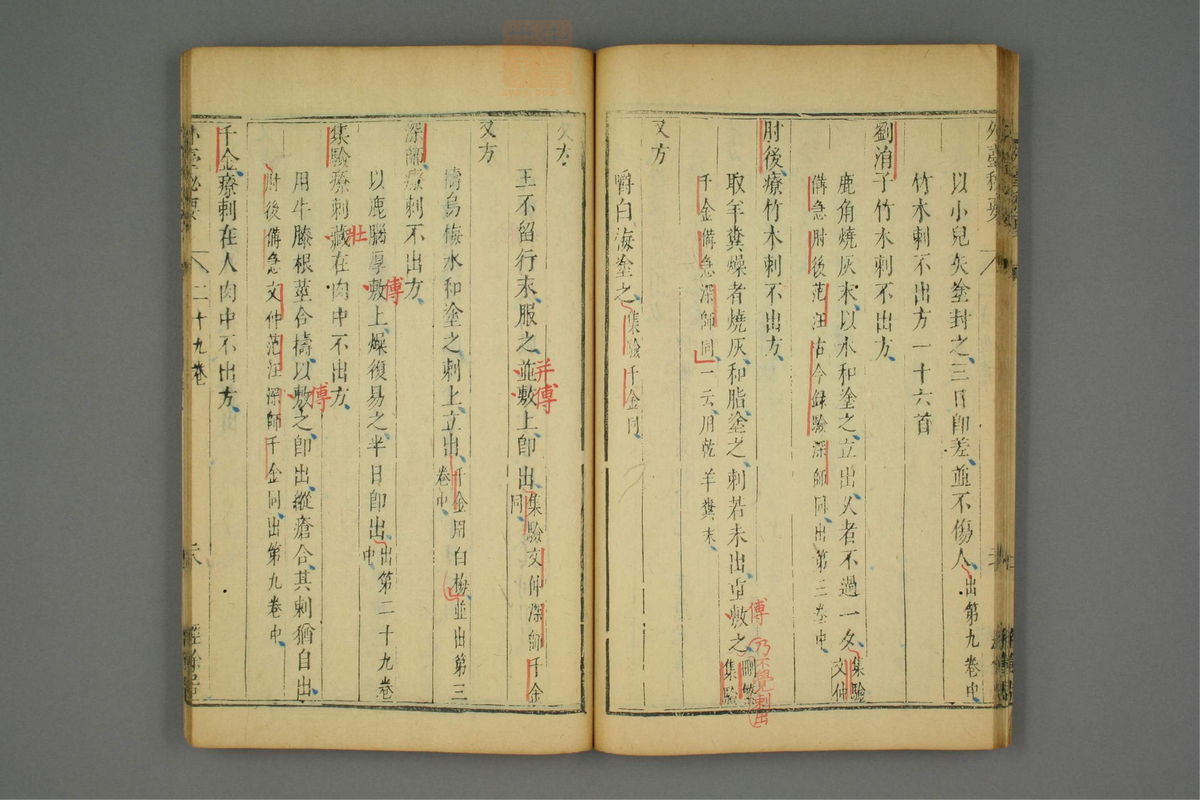 以小兒矢塗封之三日卽差並不傷人出第九卷中
竹木刺不出方一十六首
劉涓子竹木刺不出方
鹿角燒灰末以水和塗之立出久者不過一夕集驗文仲
備急肘後范汪古今錄驗深師同出第三卷中
肘後療竹木刺不出方
取羊糞燥者燒灰和脂塗之刺若未出重敷之刪繁集驗
傅
乃不覺刺出
千金備急深師同一云用乾羊糞末
又方
嚼白海塗之集驗千金同
又方
王不留行末服之並敷上卽出集驗文仲深師千金同
并傅
又方
擣烏梅水和塗之刺上立出千金用白梅並出第三卷中
深師療刺不出方
以鹿腦厚敷上燥復易之半日卽出出第二十九卷中
傅
集驗療刺藏在肉中不出方
壮
用牛膝根莖合擣以敷之卽出縱瘡合其刺猶自出
傅
肘後備急文仲范汪深師千金同出第九卷中
千金療刺在人肉中不出方
外臺秘要
二十九卷